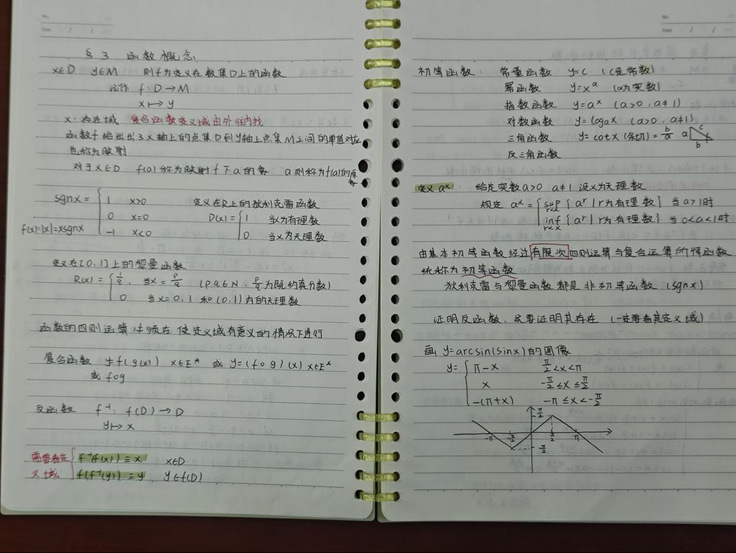 §3 函数概念
x∈D y∈M 则f为定义在数集D上的函数
记作 f: D→M
x↦y
x 为定义域 复合函数定义域由外往内找
函数f给出出了x轴上的点集D到y轴上点集M之间的单值对应
也称为映射
对于x∈D f(a)称为映射f下a的象 a则称为f(a)的原象
sgnx= { 1 x>0
0 x=0
-1 x<0
f(x)=|x|=xsgnx
定义在R上的狄利克雷函数
D(x)= { 1 当x为有理数
0 当x为无理数
定义在[0,1]上的黎曼函数
R(x)= { 1/q, 当x=p/q (p,q∈N+ p/q为既约真分数)
0 当x=0,1和(0,1)内的无理数
函数的四则运算 在使定义域有意义的情况下进行
复合函数 y=f(g(x)) x∈E* 或 y=(f∘g)(x) x∈E*
或 f∘g
反函数 f⁻¹: f(D)→D
y↦x
需要看定义域 { f⁻¹(f(x))≡x x∈D
f(f⁻¹(y))≡y y∈f(D)
初等函数 常量函数 y=c (c是常数)
幂函数 y=x^α (α为实数)
指数函数 y=a^x (a>0,a≠1)
对数函数 y=logax (a>0,a≠1)
三角函数 y=cotx(余切)=b/a a c b
反三角函数
定义a^x 给定实数a>0 a≠1 设x为无理数
规定 a^x= { sup r<x {a^r|r为有理数} 当a>1时
inf r<x {a^r|r为有理数} 当0<a<1时
由基本初等函数经过有限次四则运算与复合运算所得函数
统称为初等函数
狄利克雷与黎曼函数都是非初等函数 (sgnx)
证明反函数,先要证明其存在 (一定要看其定义域)
画 y=arcsin(sinx)的图像
y= { π-x π/2<x<π
x -π/2≤x≤π/2
-(π+x) -π≤x<-π/2
π/2
-π -π/2 π/2 π
-π/2